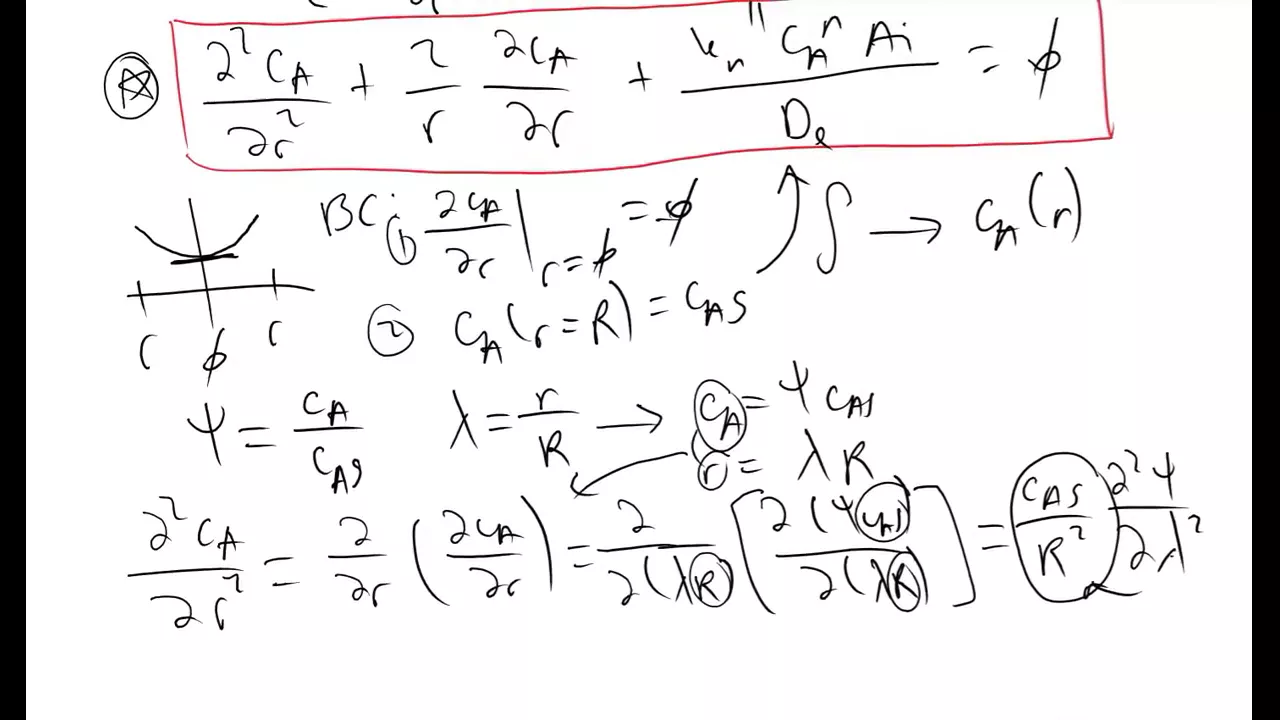 ☆ ∂²C_A/∂r² + 2/r ∂C_A/∂r + k_n'' C_A^n A_i / D_e = ϕ
BC: ① ∂C_A/∂r |_{r=ϕ} = ϕ ∫ → C_A(r)
r ϕ r ② C_A(r=R) = C_AS
ψ = C_A/C_AS λ = r/R → C_A = ψ C_AS
r = λ R
∂²C_A/∂r² = ∂/∂r (∂C_A/∂r) = ∂/∂(λR) [∂(ψ C_AS)/∂(λR)] = C_AS/R² ∂²ψ/∂λ²